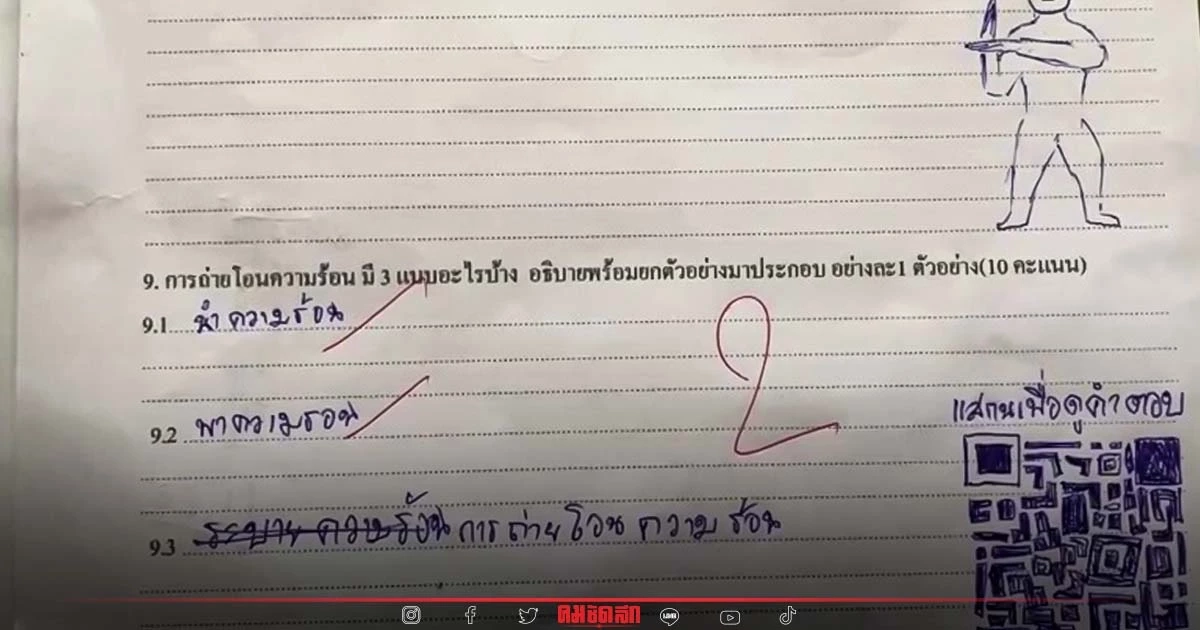 9. การถ่ายโอนความร้อน มี 3 แบบอะไรบ้าง อธิบายพร้อมยกตัวอย่างมาประกอบ อย่างละ1 ตัวอย่าง(10 คะแนน)
9.1 นำความร้อน
2
9.2 พาความรอน
แสกนเพื่อดูคำตอบ
9.3 ระบายความร้อน การถ่ายโอนความร้อน
คมชัดลึก
LINE